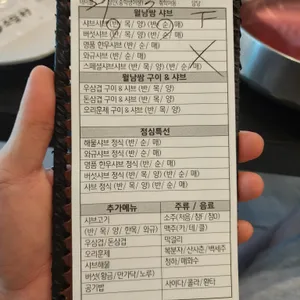 월남쌈 샤브
샤브샤브 (반/ 목/ 양) (반/ 순/ 매)
버섯샤브 (반/ 목/ 양) (반/ 순/ 매)
명품 한우샤브 (반/ 순/ 매)
와규샤브 (반/ 순/ 매)
스페셜샤브샤브 (반/ 목/ 양) (반/ 순/ 매)
월남쌈 구이 & 샤브
우삼겹 구이 & 샤브 (반/ 목/ 양)
돈삼겹 구이 & 샤브 (반/ 목/ 양)
오리훈제 구이 & 샤브 (반/ 목/ 양)
점심특선
해물샤브 정식 (반/ 순/ 매)
와규샤브 정식 (반/ 순/ 매)
명품 한우샤브 정식 (반/ 순/ 매)
버섯샤브 정식 (반/ 목/ 양) (반/ 순/ 매)
샤브 정식 (반/ 목/ 양) (반/ 순/ 매)
추가메뉴 주류 / 음료
샤브고기 소주(처음/ 참/ 참이)
(반/ 목/ 양/ 한목/ 와규) 맥주(카/ 테/ 클)
우삼겹/ 돈삼겹 막걸리
오리훈제 복분자/ 산사춘/ 백세주
샤브해물 청하/ 매화수
버섯(황금/ 만가닥/ 노루)
공기밥 사이다/ 콜라/ 환타